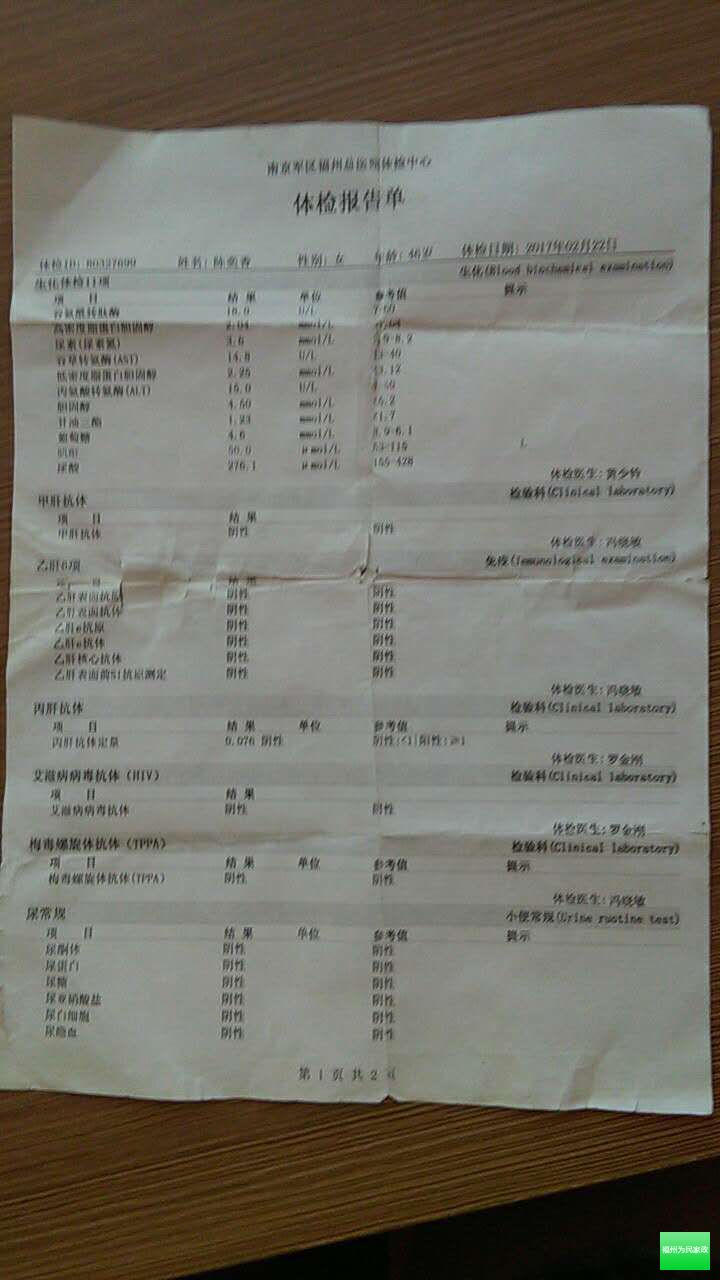 南京军区福州总医院体检中心
体检报告单
体检ID: 80327699 姓名: 陈 香 性别: 女 年龄: 46岁 体检日期: 2017年02月22日
生化体检11项 生化(Blood biochemical examination)
项 目 结 果 单位 参考值 提示
谷氨酰转肽酶 18.0 U/L 7-50
高密度脂蛋白胆固醇 2.04 mmol/L
尿素(尿素氮) 3.6 mmol/L
谷草转氨酶(AST) 14.8 U/L 13-40
低密度脂蛋白胆固醇 2.25 mmol/L
丙氨酸转氨酶(ALT) 15.0 U/L
胆固醇 4.50 mmol/L
甘油三酯 1.23 mmol/L
葡萄糖 4.6 mmol/L 3.9-6.1
肌酐 50.0 μmol/L 53-115 L
尿酸 276.1 μmol/L 155-428
体检医生: 黄少钤
甲肝抗体 检验科(Clinical laboratory)
项 目 结 果
甲肝抗体 阴性 阴性
体检医生: 冯晓敏
乙肝6项 免疫(Immunological examination)
项 目 结 果
乙肝表面抗原 阴性 阴性
乙肝表面抗体 阴性 阴性
乙肝e抗原 阴性 阴性
乙肝e抗体 阴性 阴性
乙肝核心抗体 阴性 阴性
乙肝表面前S1抗原测定 阴性 阴性
体检医生: 冯晓敏
丙肝抗体 检验科(Clinical laboratory)
项 目 结 果 单位 参考值 提示
丙肝抗体定量 0.076 阴性 阴性:<1|阳性:≥1
体检医生: 罗金刚
艾滋病病毒抗体(HIV) 检验科(Clinical laboratory)
项 目 结 果
艾滋病病毒抗体 阴性 阴性
体检医生: 罗金刚
梅毒螺旋体抗体(TPPA) 检验科(Clinical laboratory)
项 目 结 果 单位 参考值 提示
梅毒螺旋体抗体(TPPA) 阴性 阴性
体检医生: 冯晓敏
尿常规 小便常规(Urine ruotine test)
项 目 结 果 单位 参考值 提示
尿酮体 阴性 阴性
尿蛋白 阴性 阴性
尿糖 阴性 阴性
尿亚硝酸盐 阴性 阴性
尿白细胞 阴性 阴性
尿隐血 阴性 阴性
第 1 页 共 2 页
福州为民家政